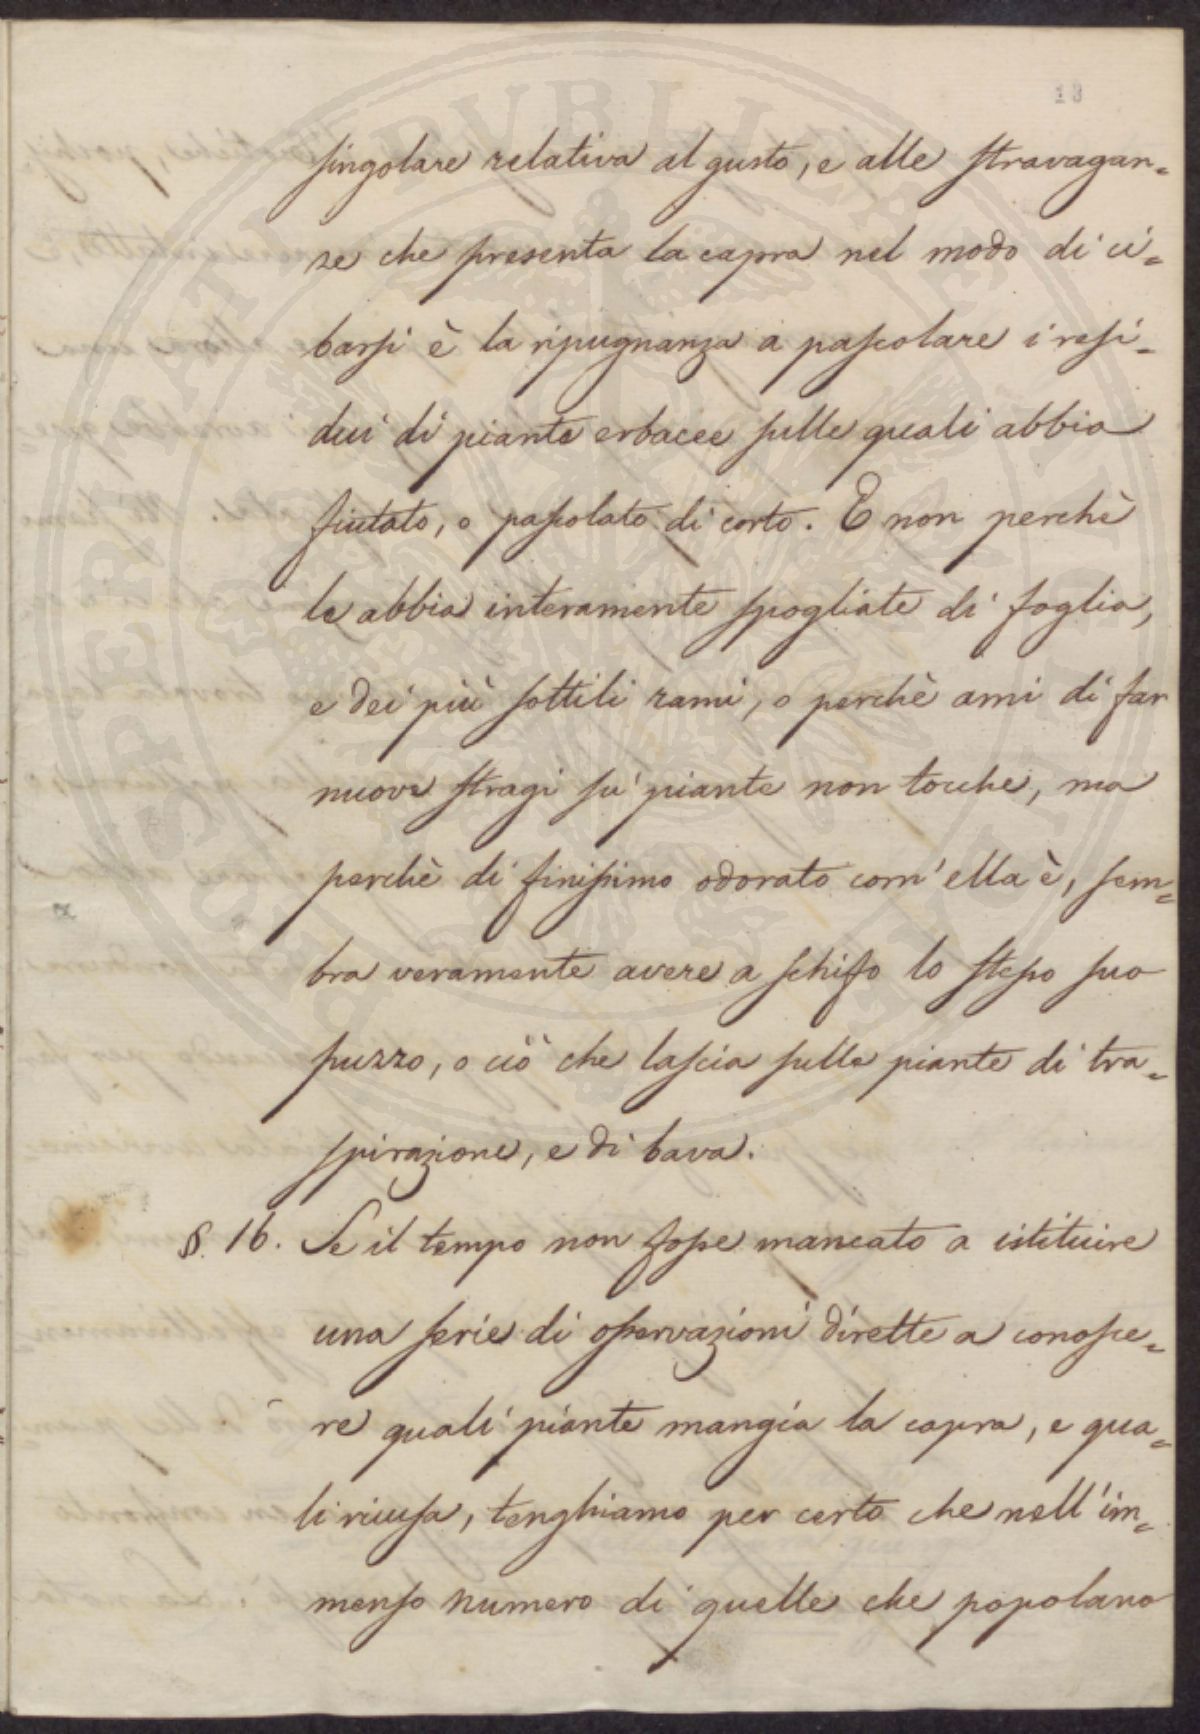 13
singolare relativa al gusto, e alle stravagan=
ze che presenta la capra nel modo di ci=
barsi è la ripugnanza a pascolare i resi=
dui di piante erbacee sulle quali abbia
fiutato, o pascolato di corto. E non perchè
le abbia interamente spogliate di foglia,
e dei più sottili rami, o perchè ami di far
nuove stragi su piante non tocche, ma
perchè di finissimo odorato com'ella è, sem=
bra veramente avere a schifo lo stesso suo
puzzo, o ciò che lascia sulle piante di tra=
spirazione, e di bava.
§. 16. Se il tempo non fosse mancato a istituire
una serie di osservazioni dirette a conosce=
re quali piante mangia la capra, e qua=
li ricusa, tenghiamo per certo che nell'im=
menso numero di quelle che popolano